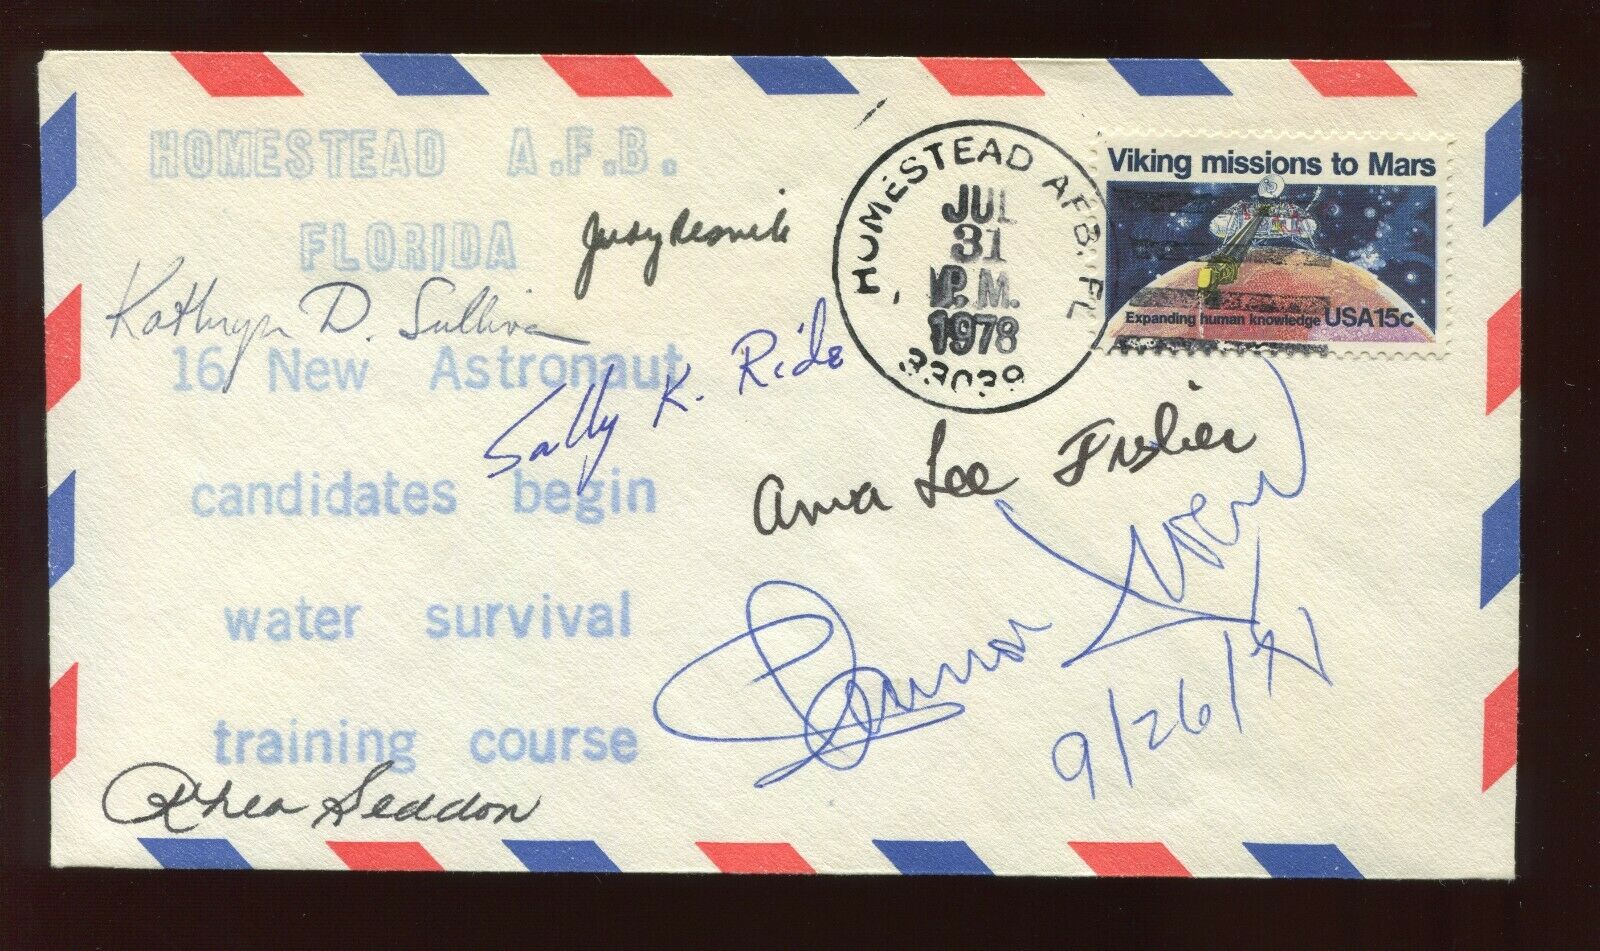 HOMESTEAD A.F.B.
FLORIDA
16 New Astronaut
candidates begin
water survival
training course
Judy Resnik
Kathryn D. Sullivan
Sally K. Ride
Anna Lee Fisher
Shannon Lucid
9/26/91
Rhea Seddon
HOMESTEAD AFB. FL
JUL
31
P.M.
1978
33039
Viking missions to Mars
Expanding human knowledge USA 15c